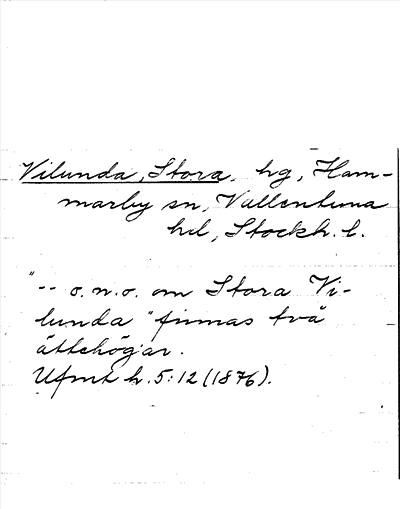 Vilunda, Stora, hg, Ham-
marby sn, Vallentuna
hd, Stockh. l.
"-- o.n.o. om Stora Vi-
lunda" finnas två
ättehögar.
Ufmt h.5:12 (1876).